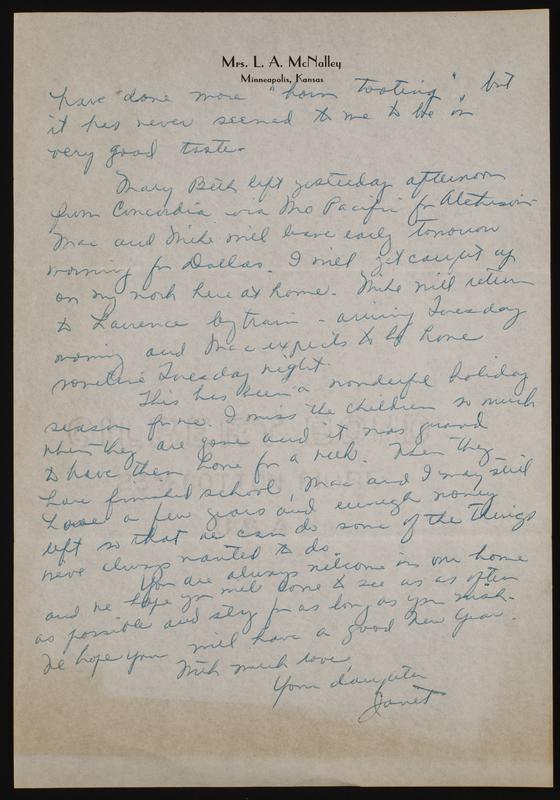 Mrs. L. A. McNalley
Minneapolis, Kansas
have done more "horn tooting", but
it has never seemed to me to be in
very good taste.
Mary Beth left yesterday afternoon
from Concordia via Mo Pacific for Atchison.
Mac and Mike will leave early tomorrow
morning for Dallas. I will get caught up
on my work here at home. Mike will return
to Lawrence by train - arriving Tuesday
morning and Mac expects to be home
sometime Tuesday night.
This has been a wonderful holiday
season for me. I miss the children so much
when they are gone and it was grand
to have them home for a week. When they
have finished school, Mac and I may still
have a few years and enough money
left so that we can do some of the things
we've always wanted to do.
You are always welcome in our home
and we hope you will come to see us as often
as possible and stay for as long as you wish.
We hope you will have a good New Year.
With much love,
Your daughter
Janet